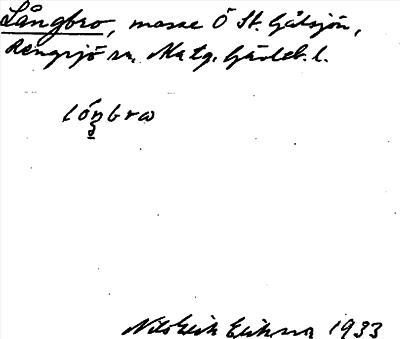 Långbro, mosse Ö St. Gåtsjön,
Rengsjö sn. Matg. Gävleb. l.
lóŋbrω
Nils Erik Eriksson 1933